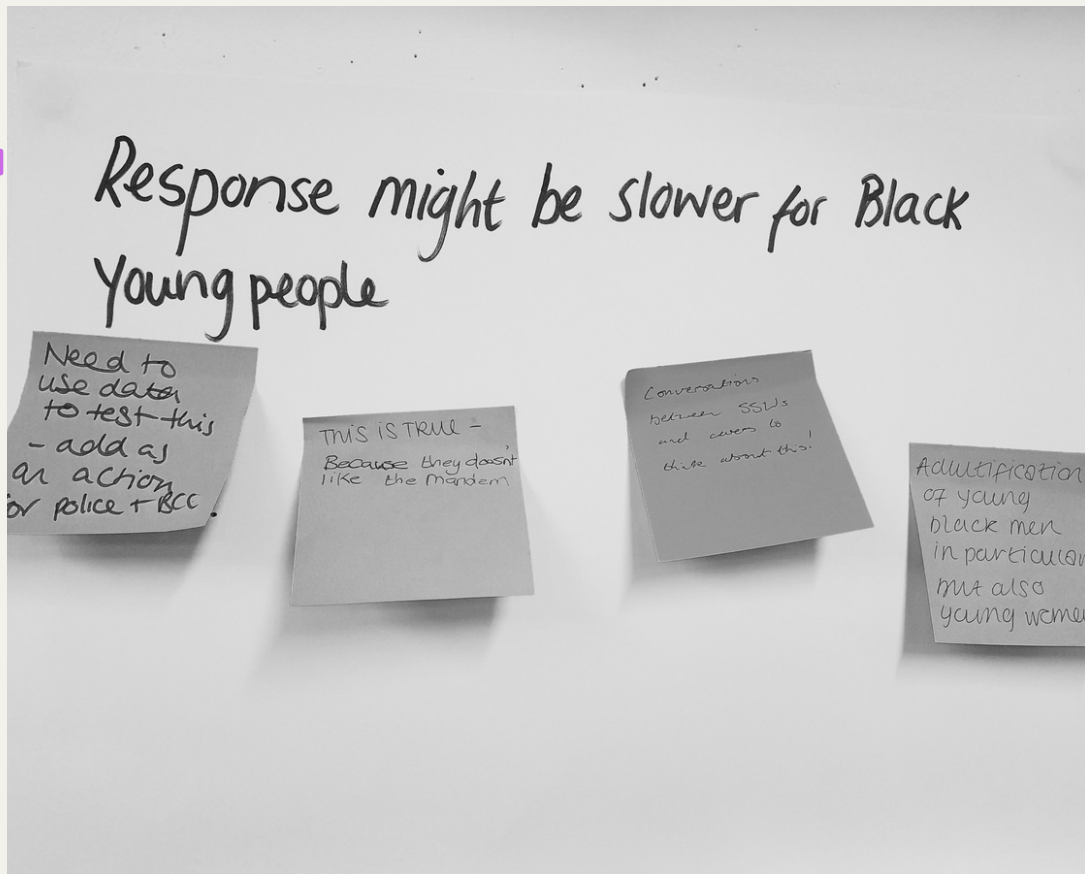 Response might be slower for Black
Young people
Need to
use data
to test this
- add as
an action
for police + BCC.
THIS IS TRUE -
Because they doesn't
like the Mandem
Conversations
between SSWs
and carers to
think about this!
Adultification
of young
black men
in particular
but also
young women